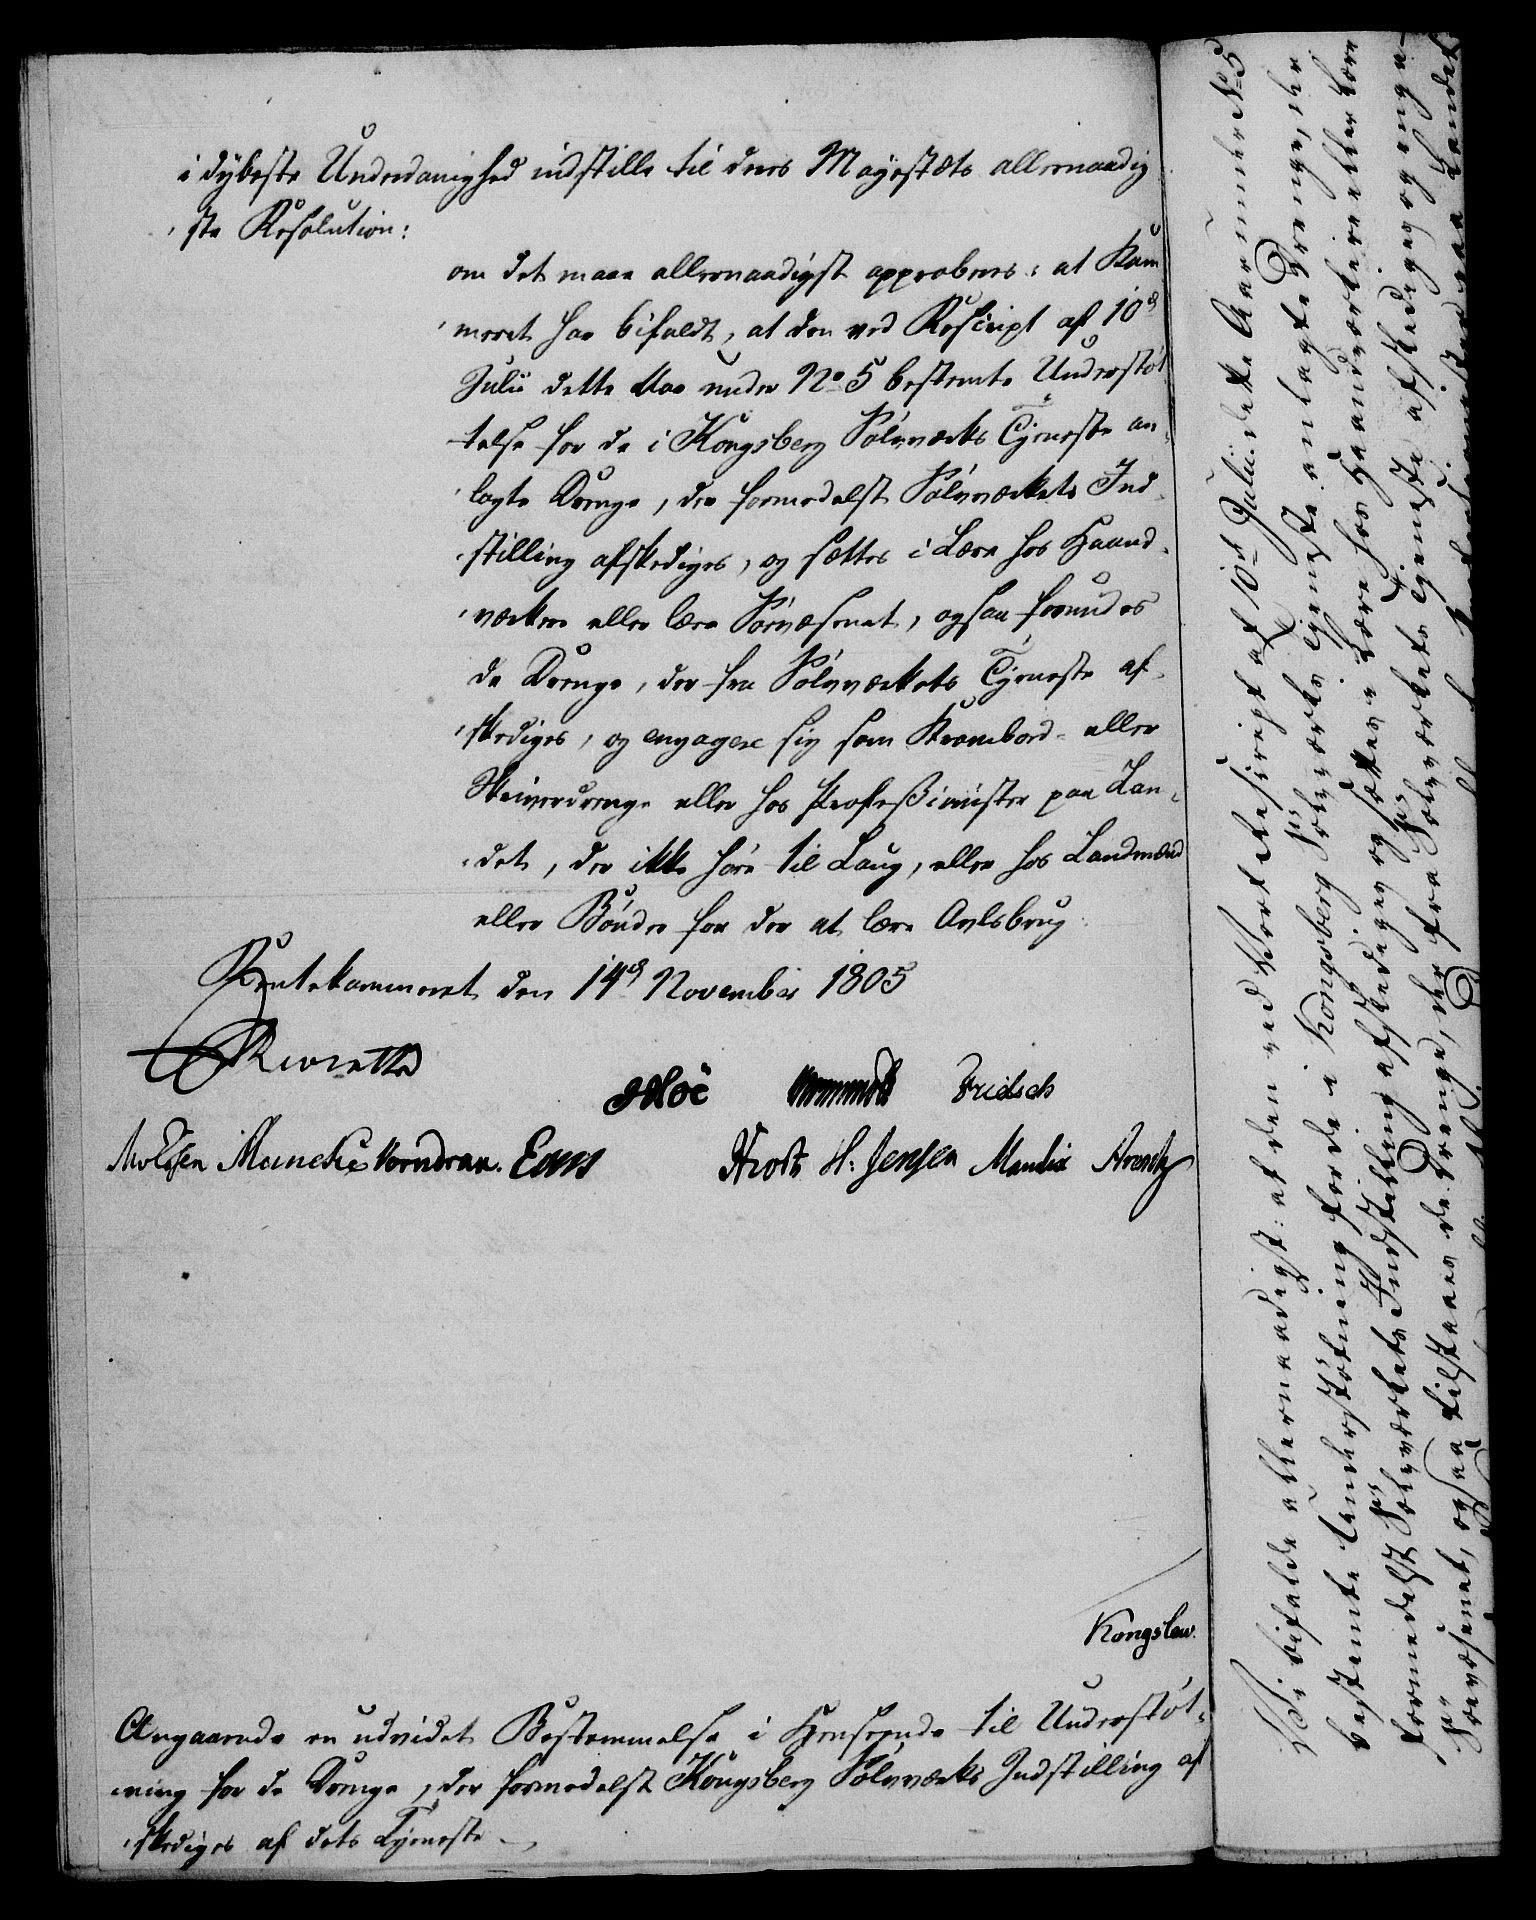 i dybeste Underdanighed indstille til Deres Mayestæts allernaadig
ste Resolution:
om det maae allernaadigst approberes: at Kam
meret har bifaldt, at den ved Rescript af 10de
Julii dette Aar under No 5 bestemte Understøt
telse for de i Kongsberg Sølvværks Tjeneste an
lagte Drenge, der formedelst Sølvværkets Ind
stilling afskediges, og sættes i Lære hos Haand
værkere eller lære Søevæsenet, ogsaa forundes
de Drenge, der fra Sølvværkets Tjeneste af
skediges, og engagere sig som Krambod- eller
Skriverdrenge eller hos Professionister paa Lan
det, der ikke høre til Laug, eller hos Landmænd
eller Bønder for der at lære Avlsbrug.
Rentekammeret den 14de November 1805
Reventlow
JHoë Fridsch
Moldsen Meincke Vorndran. Egns Krost H: Jensen Manthe Arentz
Kongslew.
Angaaende en udvidet Bestemmelse i Henseende til Understøt
ning for de Drenge, der formedelst Kongsberg Sølvværks Indstilling af
skediges af dets Tjeneste.
Vi bifalde allernaadigst: at den ved Vort Rescript af 10de Julii dette Aar under No 5
bestemte Understøtning for de i Kongsberg Sølvværks Tjeneste anlagte Drenge, der
formedelst Sølvværkets Indstilling afskediges og sættes i Lære hos Haandværkere eller lære
Søevæsenet, ogsaa tilstaaes de Drenge, der fra Sølvværkets Tjeneste afskediges og enga-